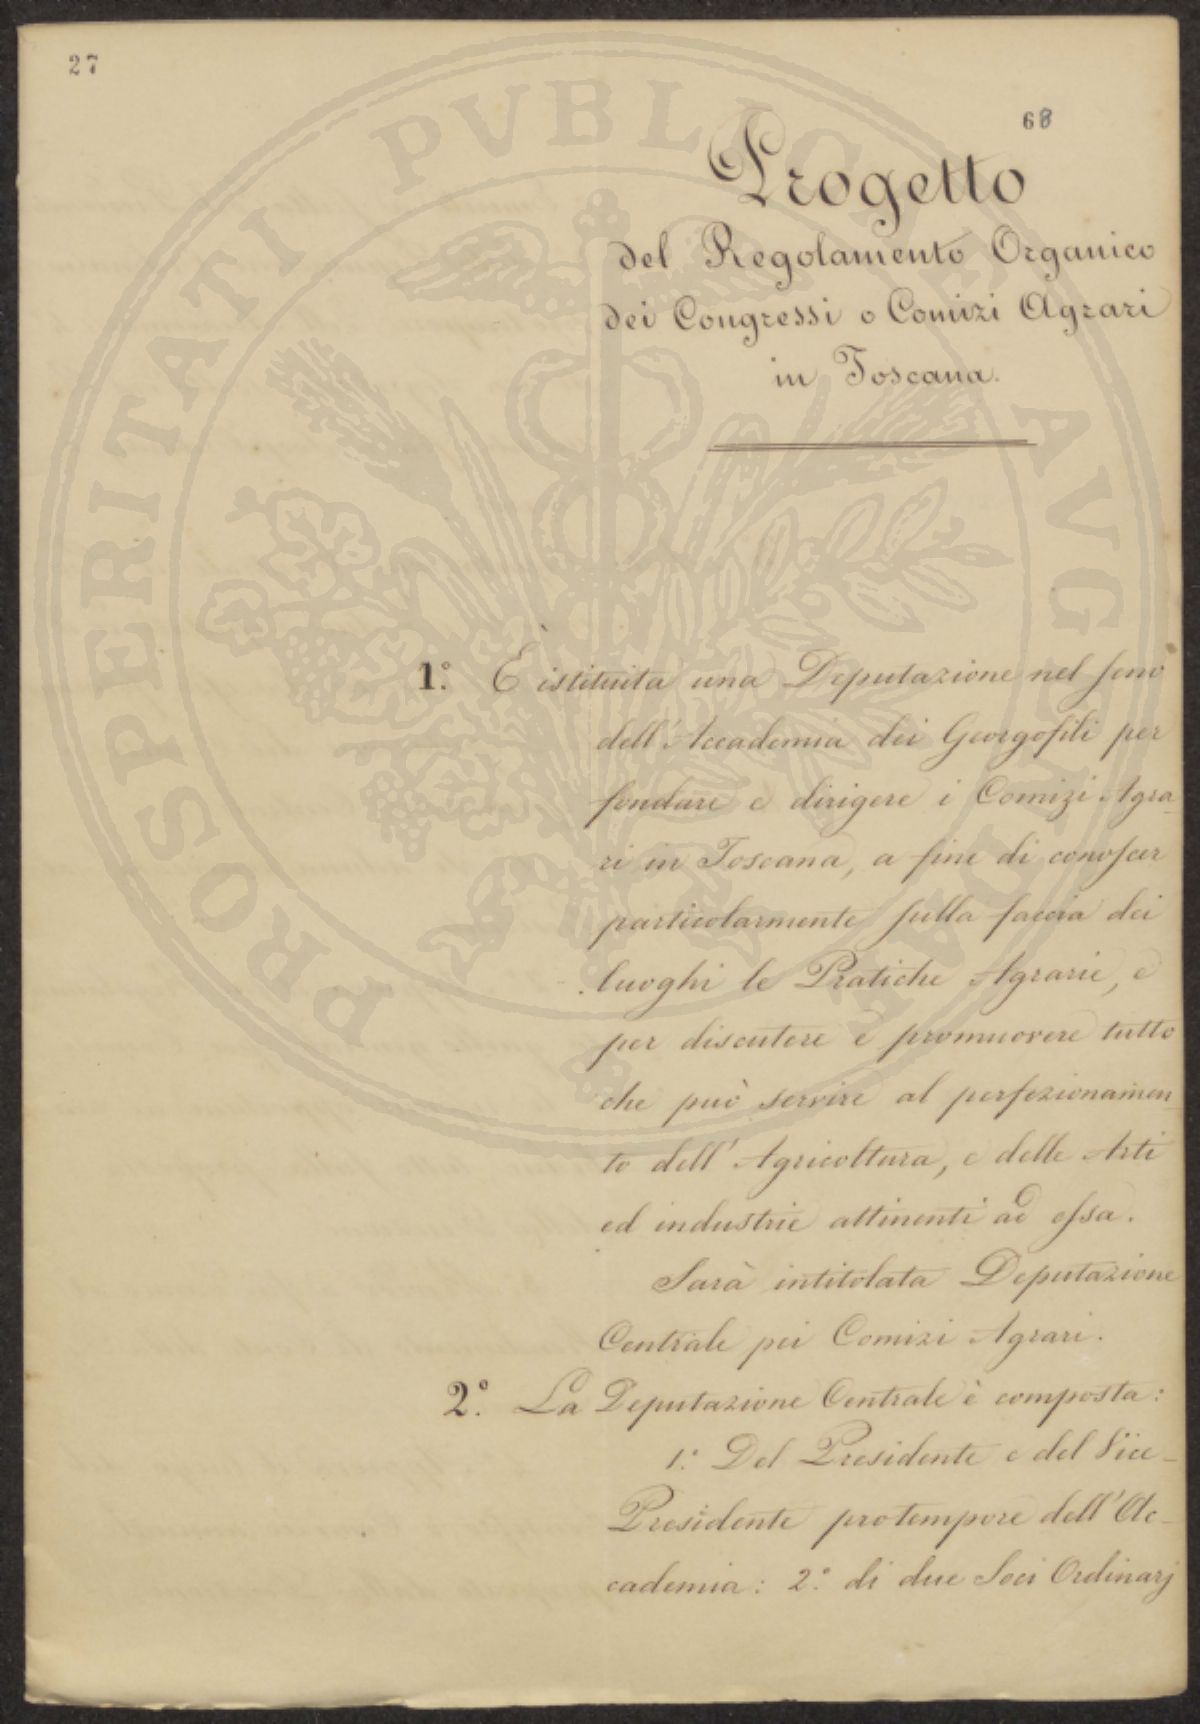 27
68
Progetto
del Regolamento Organico
dei Congressi o Comizi Agrari
in Toscana.
1.° È istituita una Deputazione nel seno
dell'Accademia dei Georgofili per
fondare e dirigere i Comizi Agra-
ri in Toscana, a fine di conoscer
particolarmente sulla faccia dei
luoghi le Pratiche Agrarie, e
per discutere e promuovere tutto
che può servire al perfezionamen-
to dell'Agricoltura, e delle Arti
ed industrie attinenti ad essa.
Sarà intitolata Deputazione
Centrale pei Comizi Agrari.
2.° La Deputazione Centrale è composta:
1.° Del Presidente e del Vice-
Presidente protempore dell'Ac-
cademia: 2.° di due Soci Ordinarj
PROSPERITATI PVBLICAE AVGENDAE